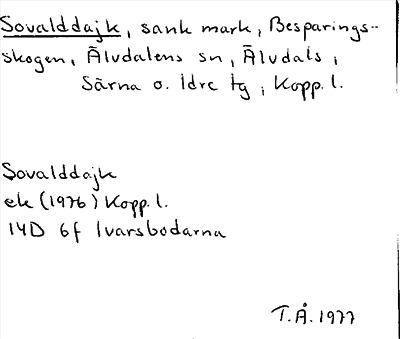 Sovalddajk, sank mark, Besparings-
skogen, Älvdalens sn, Älvdals,
Särna o. Idre tg, Kopp. l.
Sovalddajk
ek (1976) Kopp. l.
14D 6f Ivarsbodarna
T.Å. 1977